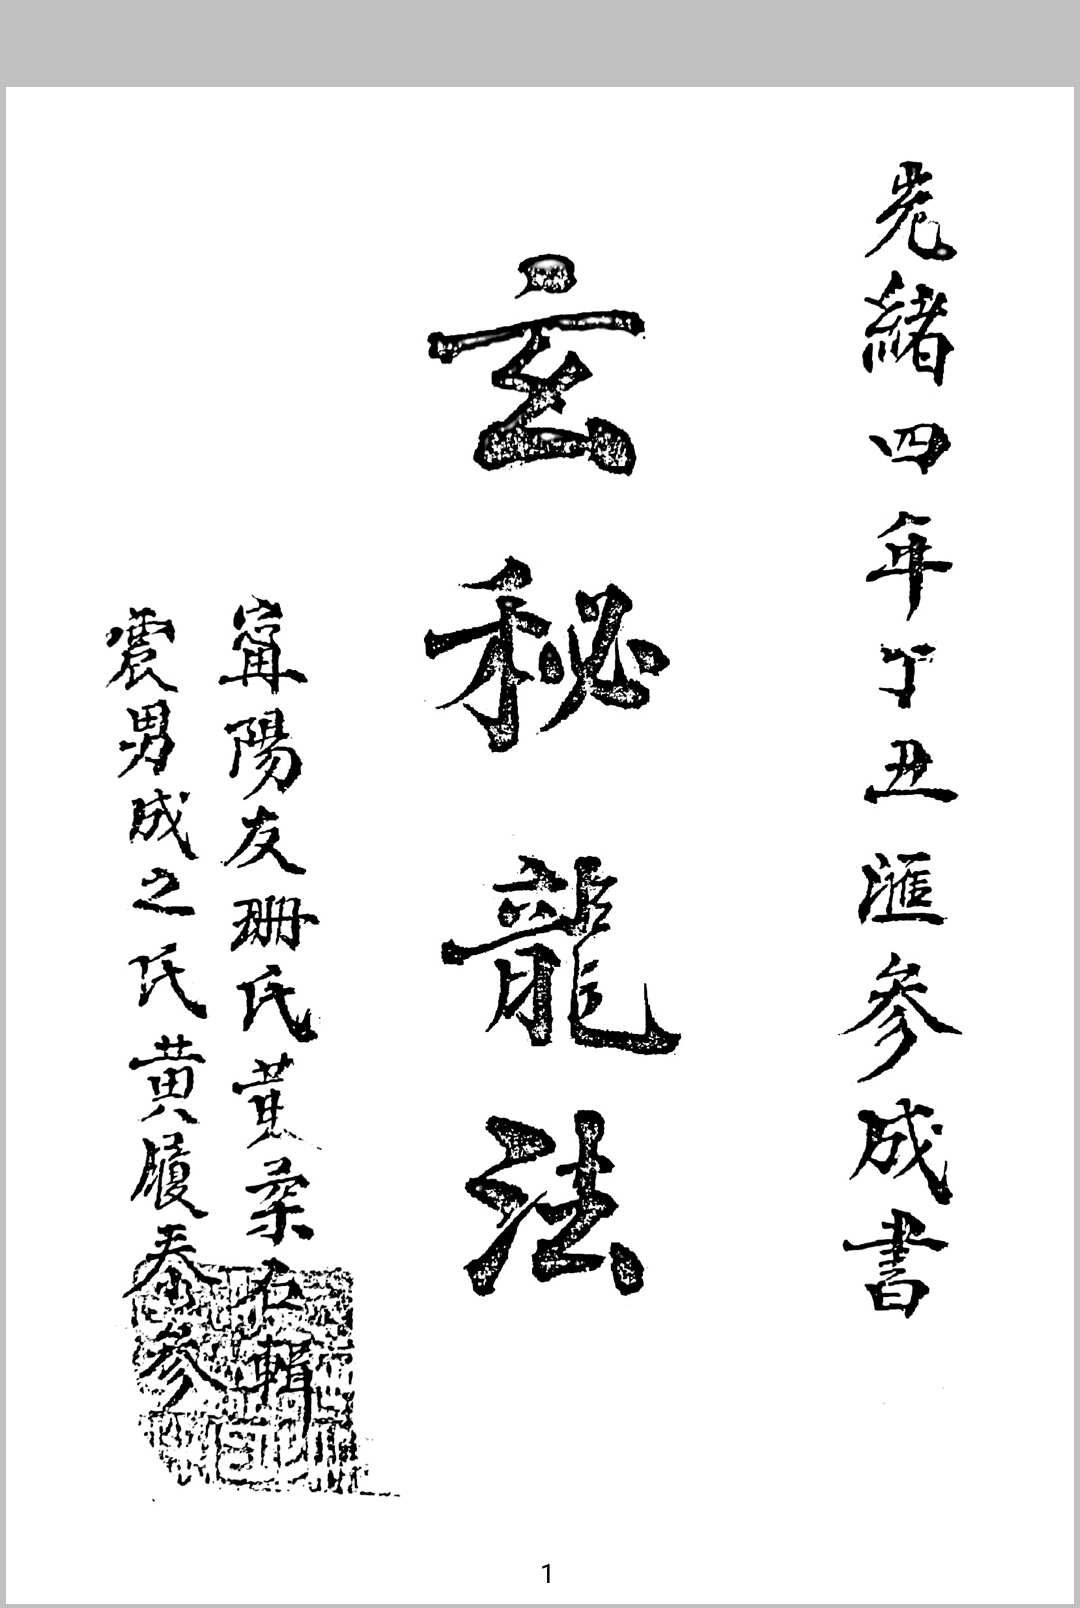 光緒四年丁丑滙參成書
玄秘龍法
甯陽友珊氏黃榮石輯
震男成之氏黄履泰參
1